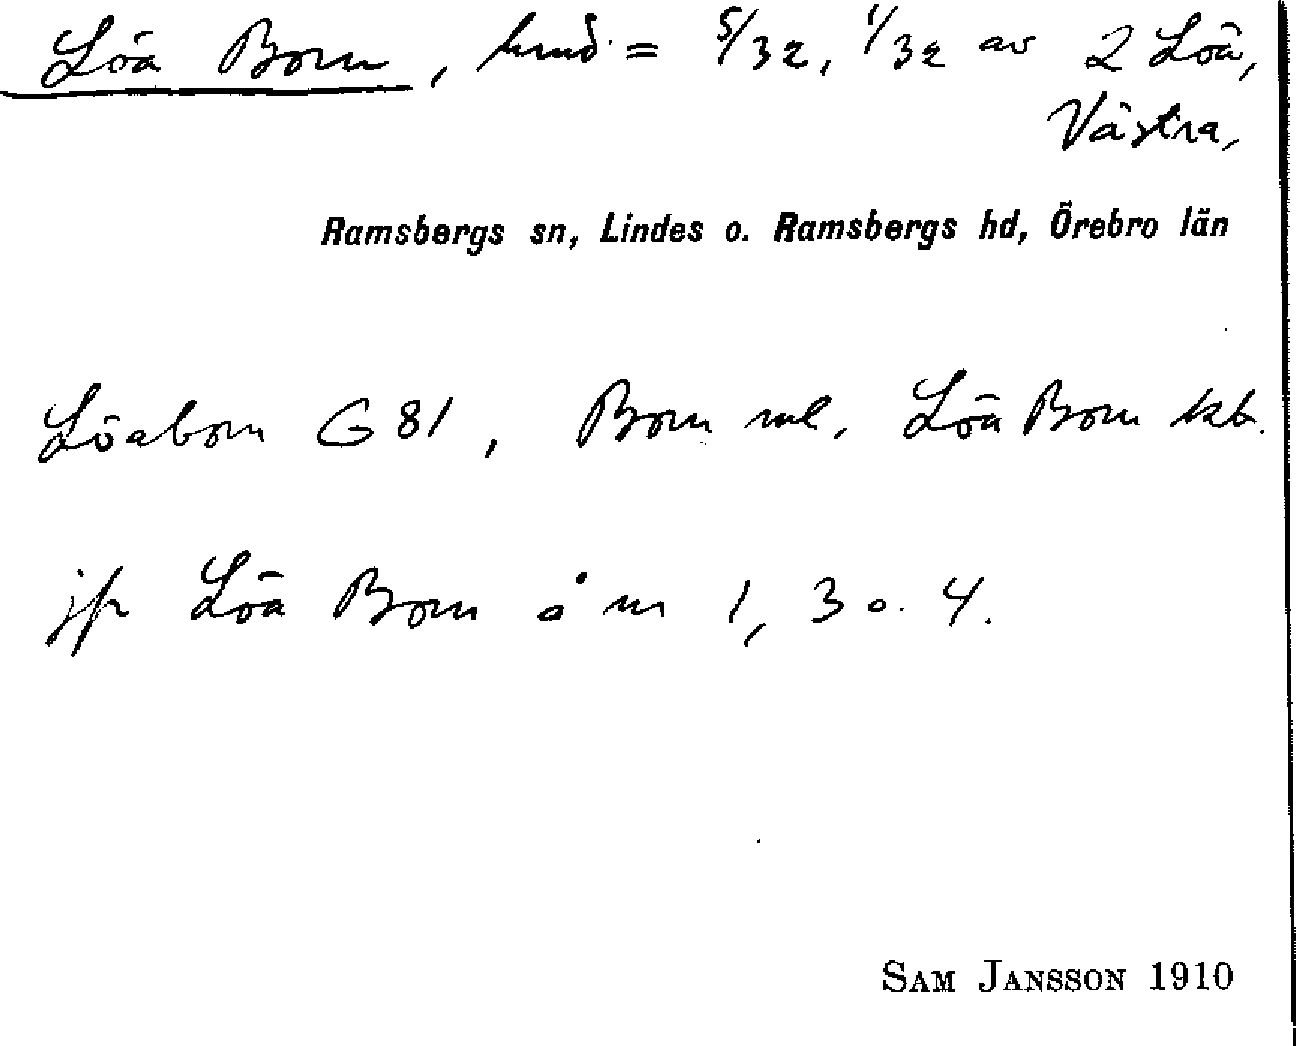 Löa Born, hmd = 5/32, 1/32 av 2 Löa,
Västra,
Ramsbergs sn, Lindes o. Ramsbergs hd, Örebro län
Löaborn G 81, Born ml. Löa Born kb.
jfr Löa Born å nr 1, 3 o. 4.
SAM JANSSON 1910